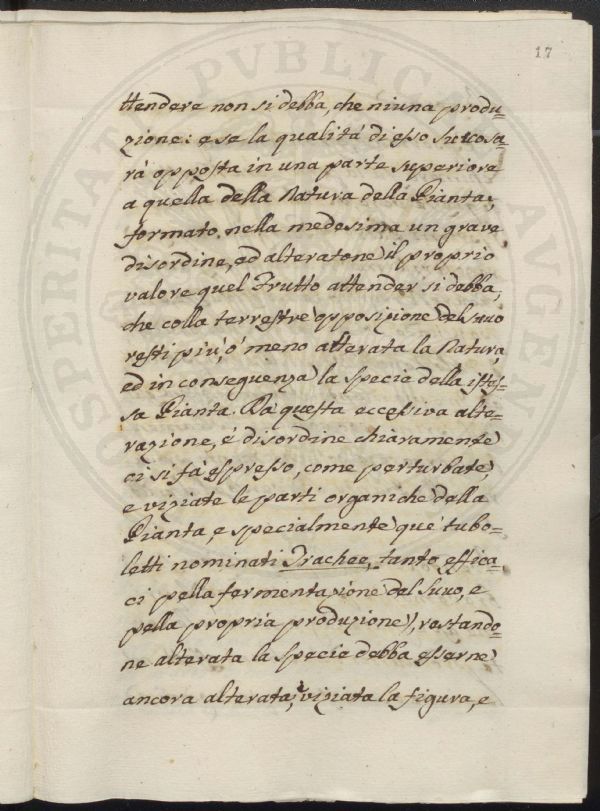 17
ttendere non si debba, che niuna produ-
zione: e se la qualitá di esso suuo sa-
rá opposta in una parte superiore
a quella della Natura della Pianta;
formato nella medesima un grave
disordine, ed alteratone il proprio
valore quel Frutto attender si debba,
che colla terrestre opposizione del suuo
resti piú, ó meno alterata la Natura,
ed in conseguenza la specie della istes-
sa Pianta. Da questa eccessiva alte-
razione, é disordine chiaramente
ci si fá espresso, come perturbate,
e viziate le parti organiche della
Pianta, e specialmente que' tubo-
letti nominati Trachee, tanto effica-
ci pella fermentazione del suuo, e
pella propria produzione, restando-
ne alterata la specie debba esserne
ancora alterata, e viziata la figura, e